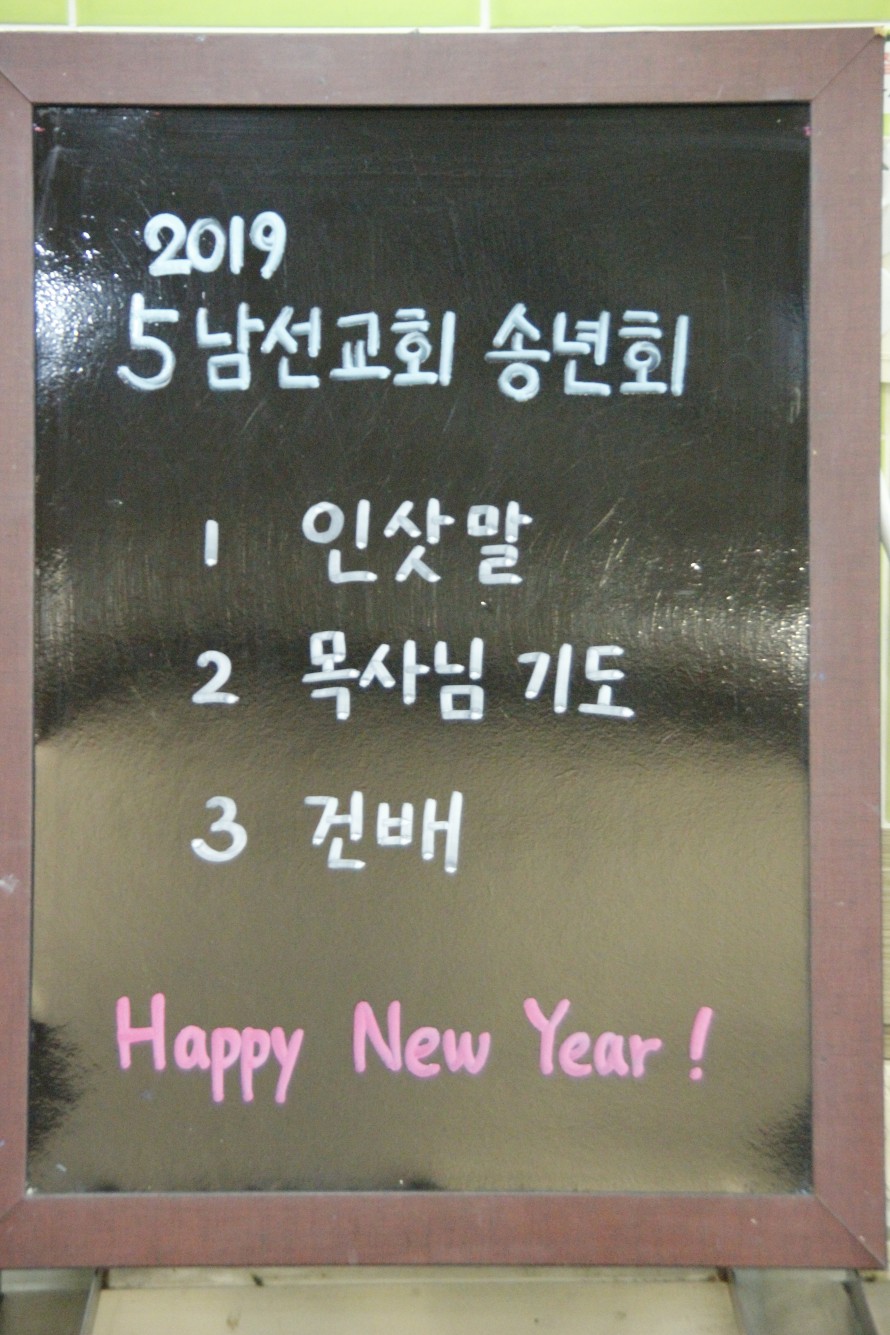 2019
5남선교회 송년회
1 인삿말
2 목사님 기도
3 건배
Happy New Year!